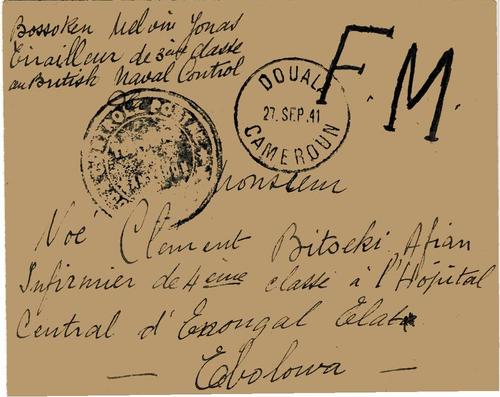 Bossoken Melvin Jonas
Tirailleur de 3ième classe
au British Naval Control
F.M.
DOUALA
27. SEP. 41
CAMEROUN
Monsieur
Noé Clement Bitseki Afian
Infirmier de 4ème classe à l'Hôpital
Central d'Enongal Elat
— Ebolowa —